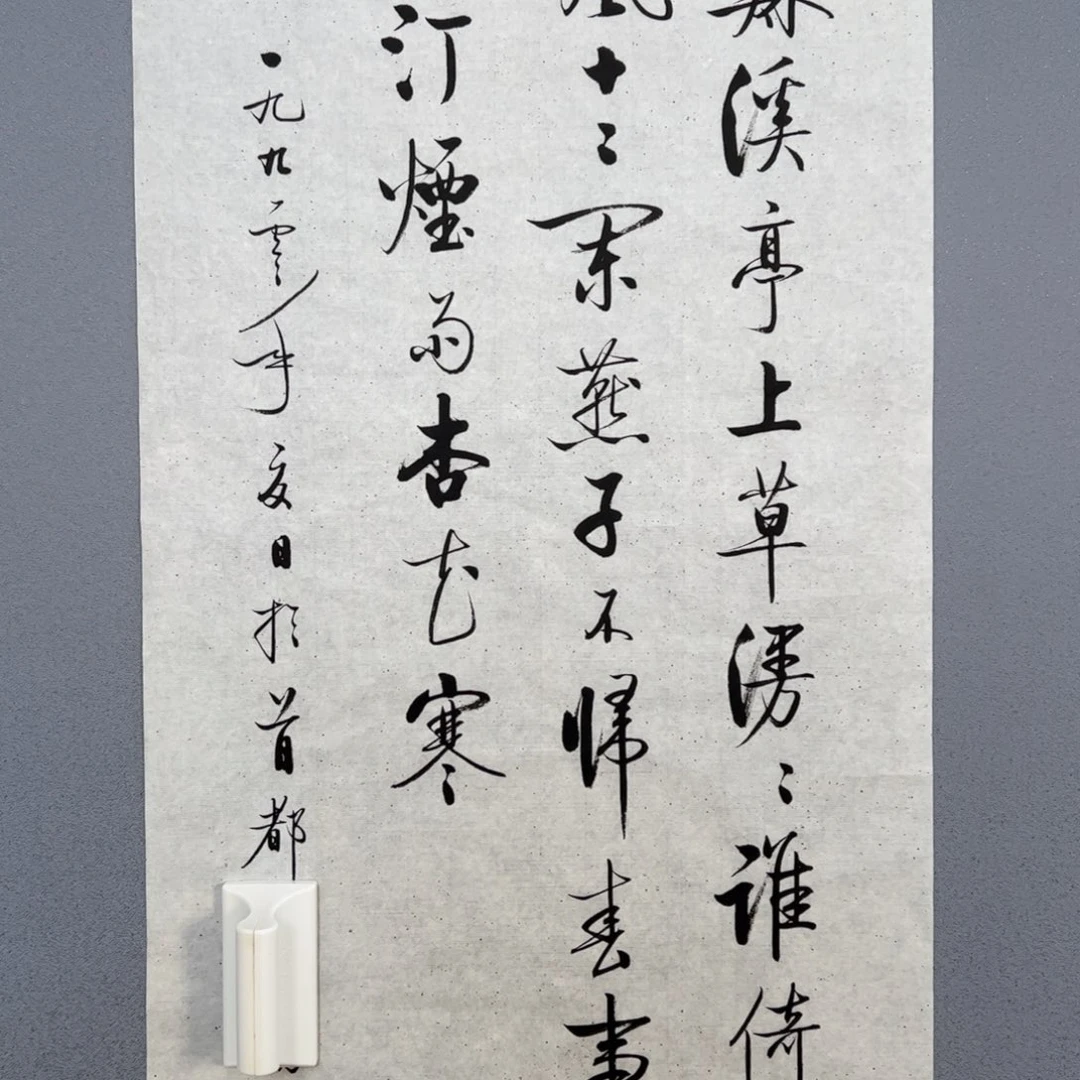 蘇溪亭上草漫々誰倚
風十二闌燕子不歸春事
汀煙雨杏花寒
一九九零年夏日於首都